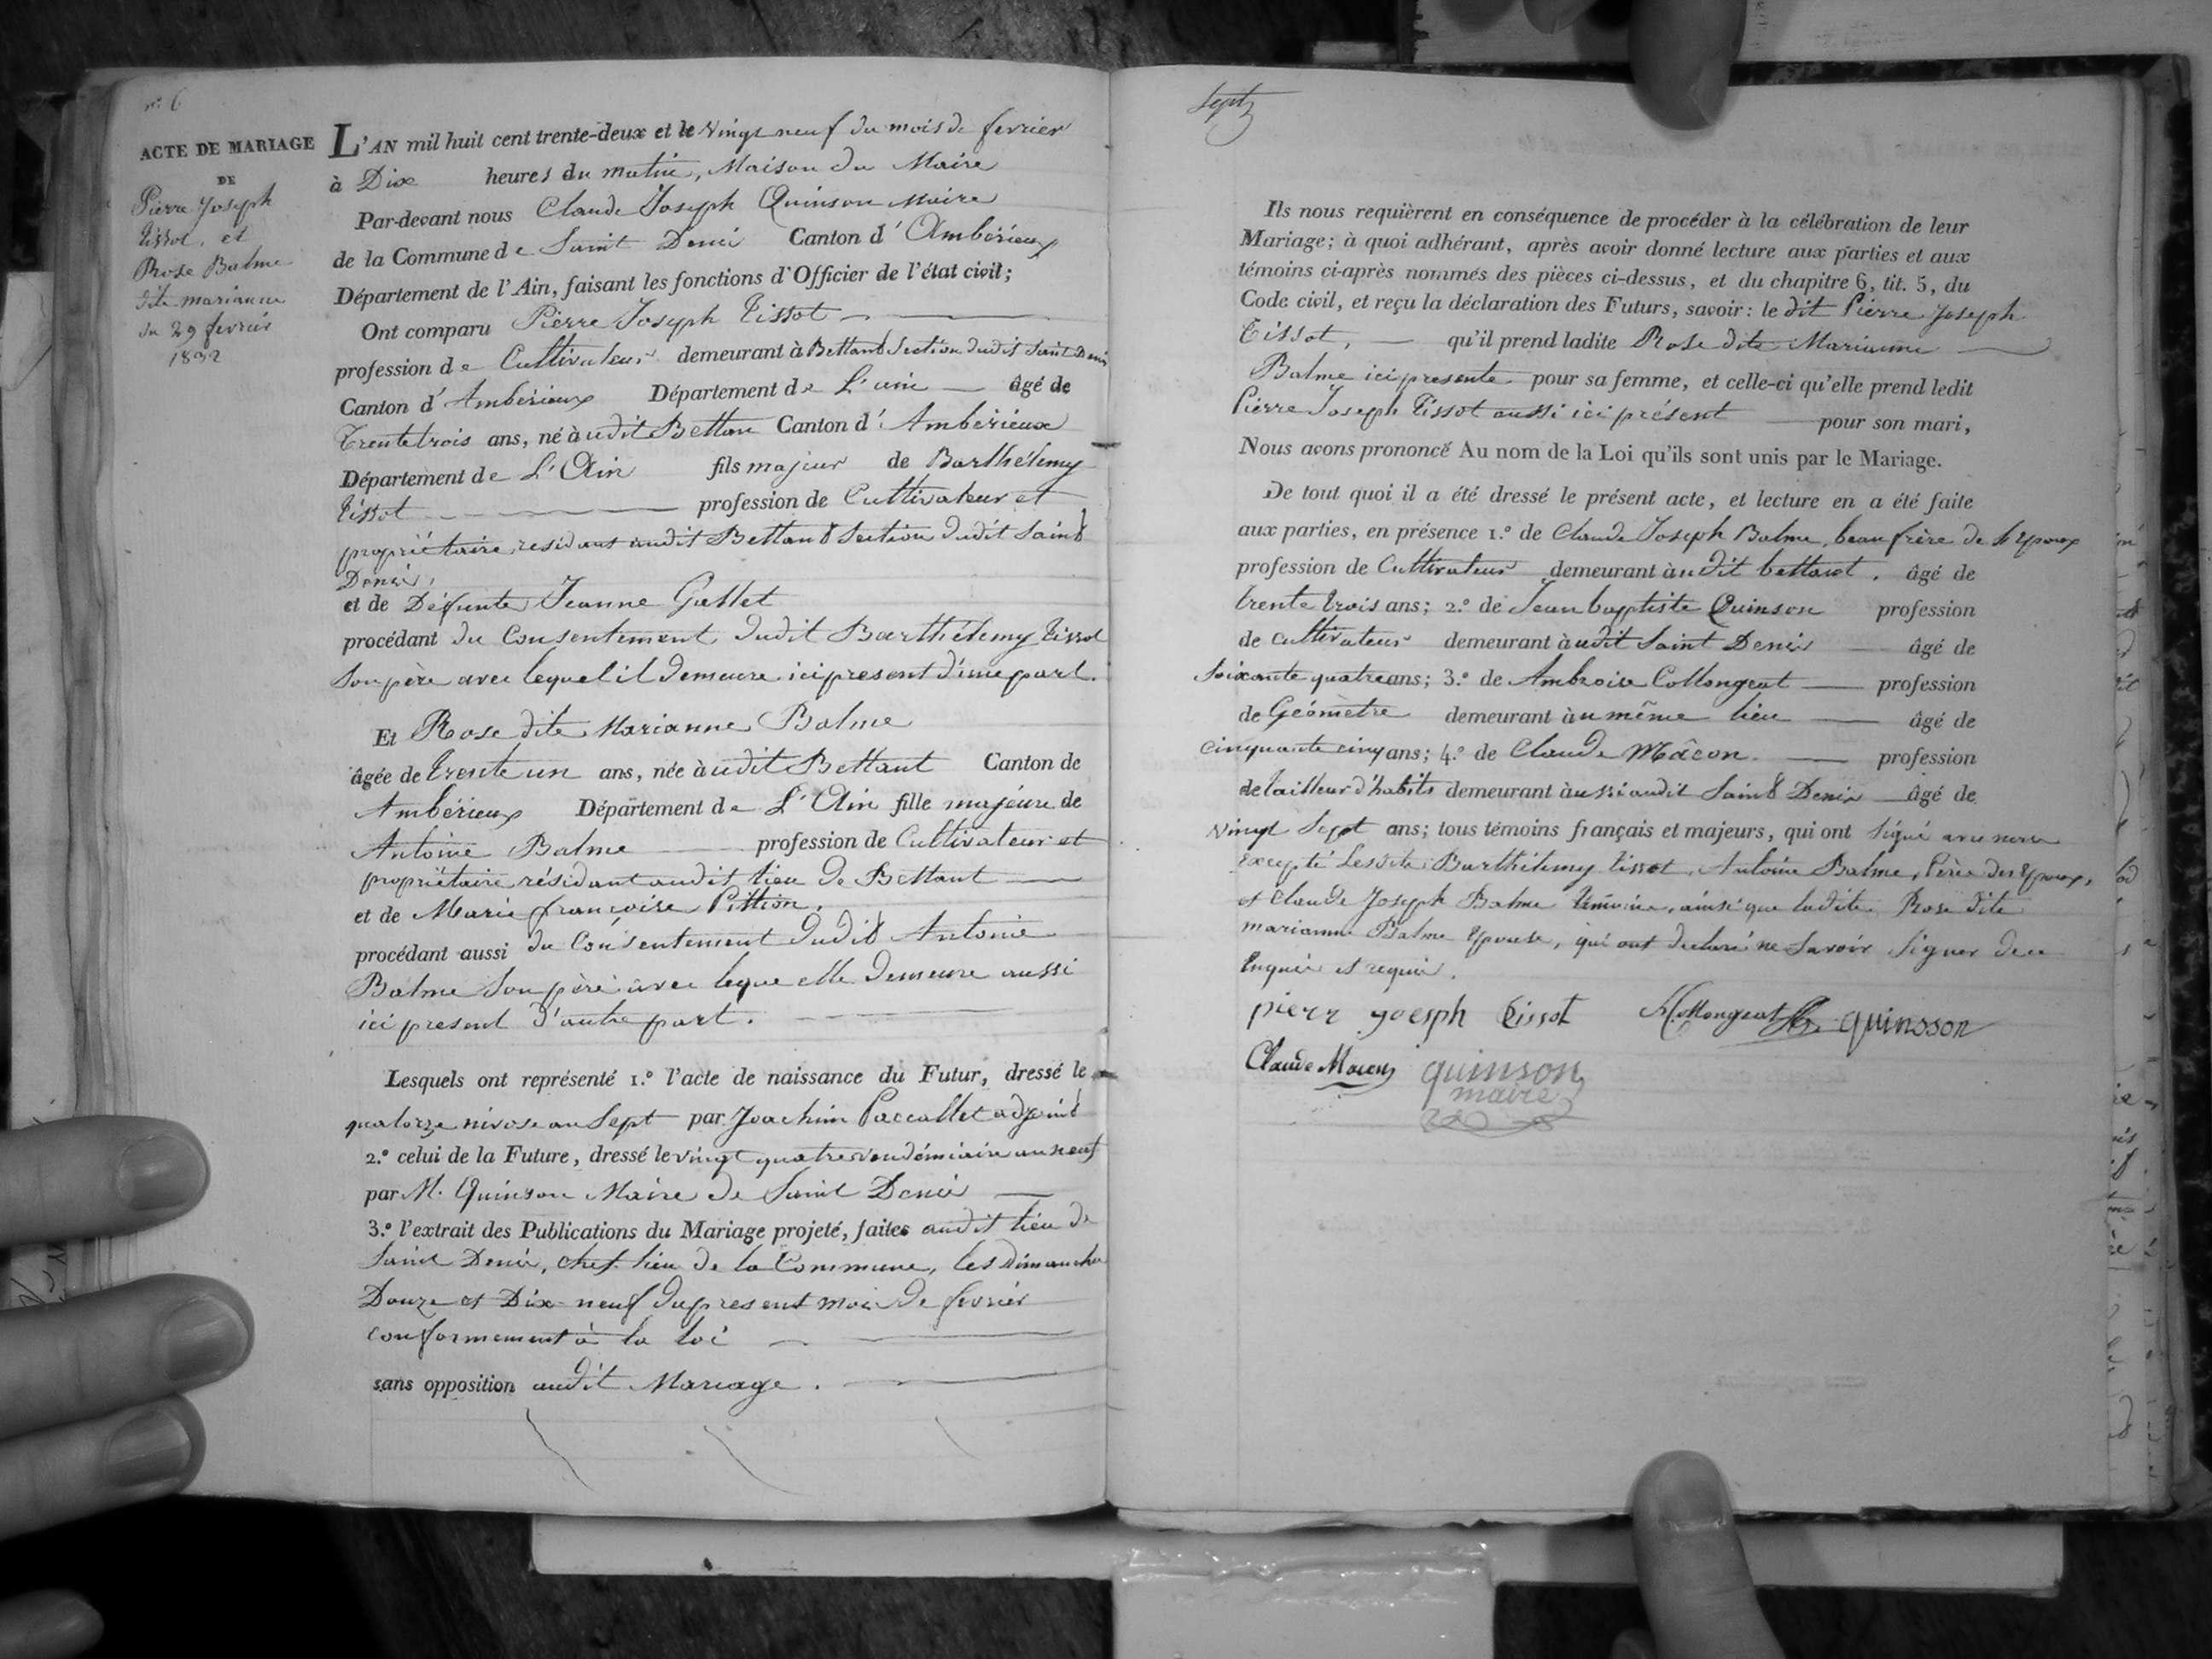 n° 6
ACTE DE MARIAGE
DE
Pierre Joseph
Tissot, et
Rose Balme
dite marianne
du 29 fevrier
1832
L'AN mil huit cent trente-deux et le vingt neuf du mois de fevrier
à Dix heures du matin, Maison du Maire
Par-devant nous Claude Joseph Quinson Maire
de la Commune de Saint Denis Canton d'Ambérieux
Département de l'Ain, faisant les fonctions d'Officier de l'état civil;
Ont comparu Pierre Joseph Tissot
profession de Cultivateur demeurant à Bettant Section dudit Saint Denis
Canton d'Ambérieux Département de L'ain âgé de
Trente trois ans, né audit Bettan Canton d'Ambérieux
Département de L'Ain fils majeur de Barthélemy
Tissot profession de Cultivateur et
propriétaire, residant audit Bettant Section dudit Saint
Denis,
et de Défunte Jeanne Gallet
procédant du Consentement dudit Barthélemy Tissot
Son père avec lequel il demeure ici present d'une part.
Et Rose dite Marianne Balme
âgée de trente un ans, née audit Bettant Canton de
Ambérieux Département de L'Ain fille majeure de
Antoine Balme profession de Cultivateur et
propriétaire résidant audit lieu de Bettant
et de Marie françoise Pittion,
procédant aussi du Consentement dudit Antoine
Balme Son père avec leque elle demeure aussi
ici present d'autre part.
Lesquels ont représenté 1.° l'acte de naissance du Futur, dressé le
quatorze nivose an Sept par Joachim Paccallet adjoint
2.° celui de la Future, dressé le vingt quatre vendémiaire an neuf
par M. Quinson Maire de Saint Denis
3.° l'extrait des Publications du Mariage projeté, faites audit lieu de
Saint Denis, chef lieu de la Commune, les dimanches
Douze et Dix neuf du present mois de fevrier
conformement à la loi
sans opposition audit Mariage.
Sept
Ils nous requièrent en conséquence de procéder à la célébration de leur
Mariage; à quoi adhérant, après avoir donné lecture aux parties et aux
témoins ci-après nommés des pièces ci-dessus, et du chapitre 6, tit. 5, du
Code civil, et reçu la déclaration des Futurs, savoir: le dit Pierre Joseph
Tissot, qu'il prend ladite Rose dite Marianne
Balme ici presente pour sa femme, et celle-ci qu'elle prend ledit
Pierre Joseph Tissot aussi ici présent pour son mari,
Nous avons prononcé Au nom de la Loi qu'ils sont unis par le Mariage.
De tout quoi il a été dressé le présent acte, et lecture en a été faite
aux parties, en présence 1.° de Claude Joseph Balme, beau frère de l'Epoux
profession de Cultivateur demeurant audit bettant, âgé de
trente trois ans; 2.° de Jean baptiste Quinson profession
de cultivateur demeurant audit Saint Denis âgé de
Soixante quatre ans; 3.° de Ambroise Collongeat profession
de Géomètre demeurant au même lieu âgé de
cinquante cinq ans; 4.° de Claude Mâcon profession
de tailleur d'habits demeurant aussi audit Saint Denis âgé de
vingt Sept ans; tous témoins français et majeurs, qui ont signé avec nous
excepté Lesdits Barthélemy Tissot, Antoine Balme, Pères des Epoux,
et Claude Joseph Balme témoin, ainsi que ladite Rose dite
marianne Balme Epouse, qui ont declaré ne Savoir Signer de ce
Enquis et requis.
pierr goesph Tissot ACollongeat quinsson
Claude Macon quinson
maire